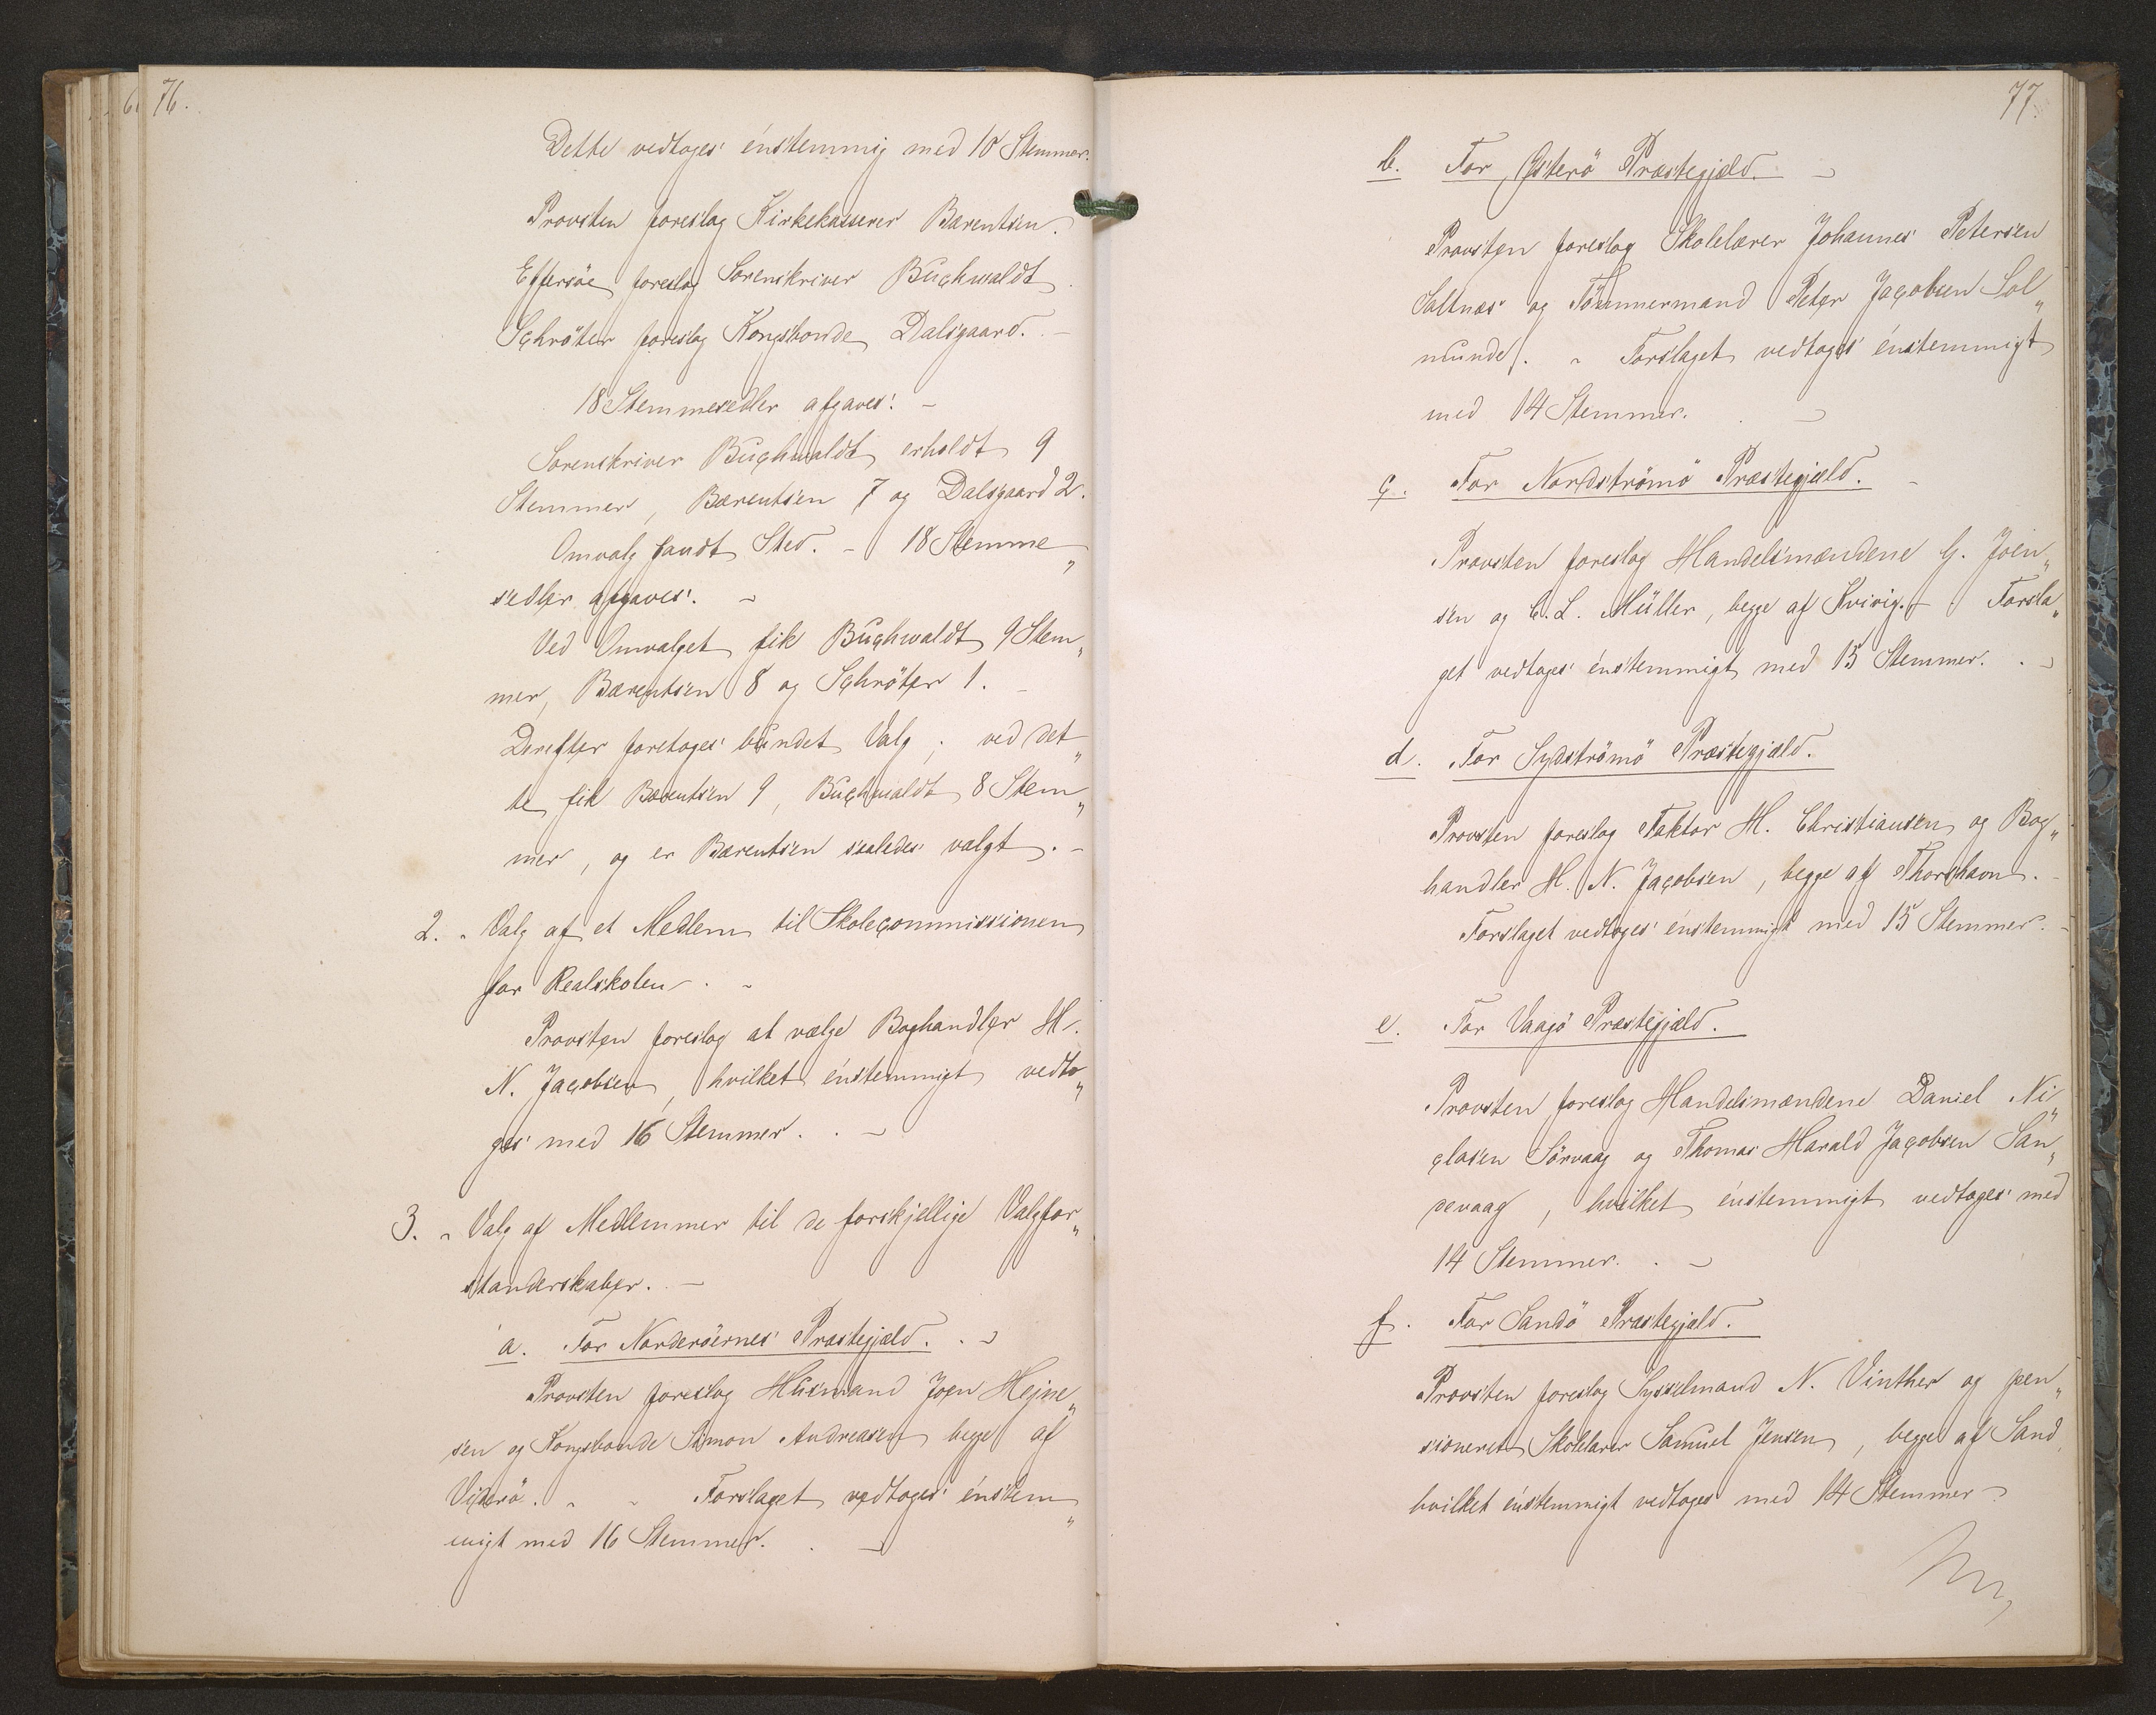 76.
Dette vedtoges énstemmig med 10 Stemmer.
Provsten foreslog Kirkekasserer Bærentsen.
Effersöe foreslog Sorenskriver Buchwaldt.
Schröter foreslog Kongsbonde Dalsgaard. –
18 Stemmesedler afgaves. –
Sorenskriver Buchwaldt erholdt 9
Stemmer, Bærentsen 7 og Dalsgaard 2.
Omvalg fandt Sted. – 18 Stemme„
sedler afgaves. –
Ved Omvalget fik Buchwaldt 9 Stem„
mer, Bærentsen 8 og Schröter 1. –
Derefter foretoges bundet Valg; ved det„
te fik Bærentsen 9, Buchwaldt 8 Stem„
mer, og er Bærentsen saaledes valgt. –
2. - Valg af et Medlem til Skolecommissionen
for Realskolen. -
Provsten foreslog at vælge Boghandler H.
N. Jacobsen, hvilket énstemmigt vedto„
ges med 16 Stemmer. –
3. - Valg af Medlemmer til de forskjellige Valgfor„
standerskaber. –
a. For Norderöernes Præstegjæld. –
Provsten foreslog Husmand Joen Hejne„
sen og Kongsbonde Simon Andreasen begge af
Viderö. - - Forslaget vedtoges énstem„
migt med 16 Stemmer. –
77.
b. For Österö Præstegjæld. –
Provsten foreslog Skolelærer Johannes Petersen
Saltnæs og Tömmermand Peter Jacobsen Sol„
munde. - Forslaget vedtoges énstemmigt
med 14 Stemmer. –
c. For Nordströmö Præstegjæld. –
Provsten foreslog Handelsmændene G. Joen„
sen og C. L. Müller, begge af Kvivig. – Forsla„
get vedtoges énstemmigt med 15 Stemmer. –
d. For Sydströmö Præstegjæld.
Provsten foreslog Faktor H. Christiansen og Bog„
handler H. N. Jacobsen, begge af Thorshavn. –
Forslaget vedtoges énstemmigt med 15 Stemmer. –
e. For Vaagö Præstegjæld.
Provsten foreslog Handelsmændene Daniel Ni„
clasen Sörvaag og Thomas Harald Jacobsen San„
devaag, hvilket énstemmigt vedtoges med
14 Stemmer. –
f. For Sandö Præstegjæld.
Provsten foreslog Sysselmand N. Vinther og pen„
sioneret Skolelærer Samuel Jensen, begge af Sand,
hvilket énstemmigt vedtoges med 14 Stemmer –